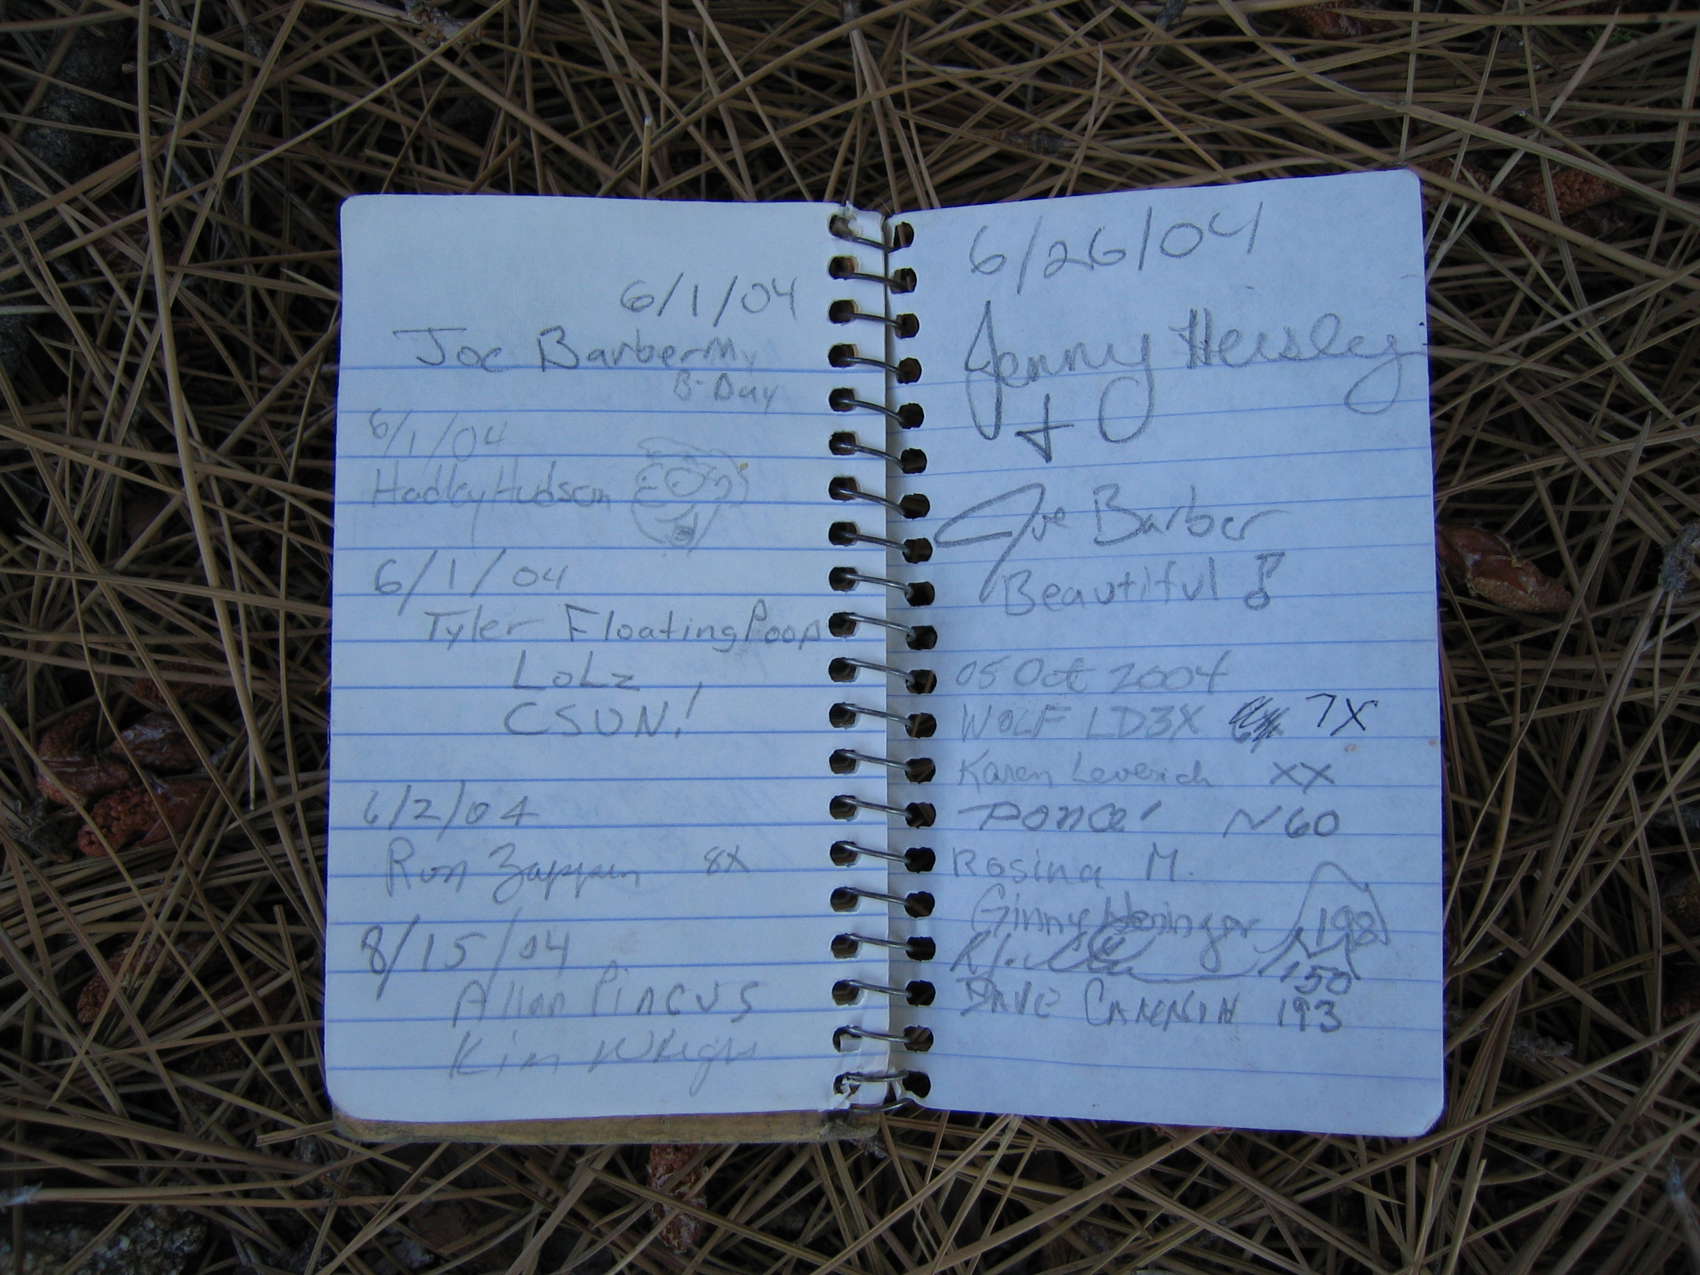 6/1/04
Joe Barber My
B-Day
6/1/04
Hadley Hudson
6/1/04
Tyler FloatingPoop
LoLz
CSUN!
6/2/04
Ron Zappen 8X
8/15/04
Allan Pincus
Kim
6/26/04
Jenny Heisley
+
Joe Barber
Beautiful!
05 Oct 2004
WOLF LD3X 7X
Karen Leverich XX
Ponce' ~60
Rosina M.
Ginny Heringer 198
R.J. 150
DAVE CANNON 193